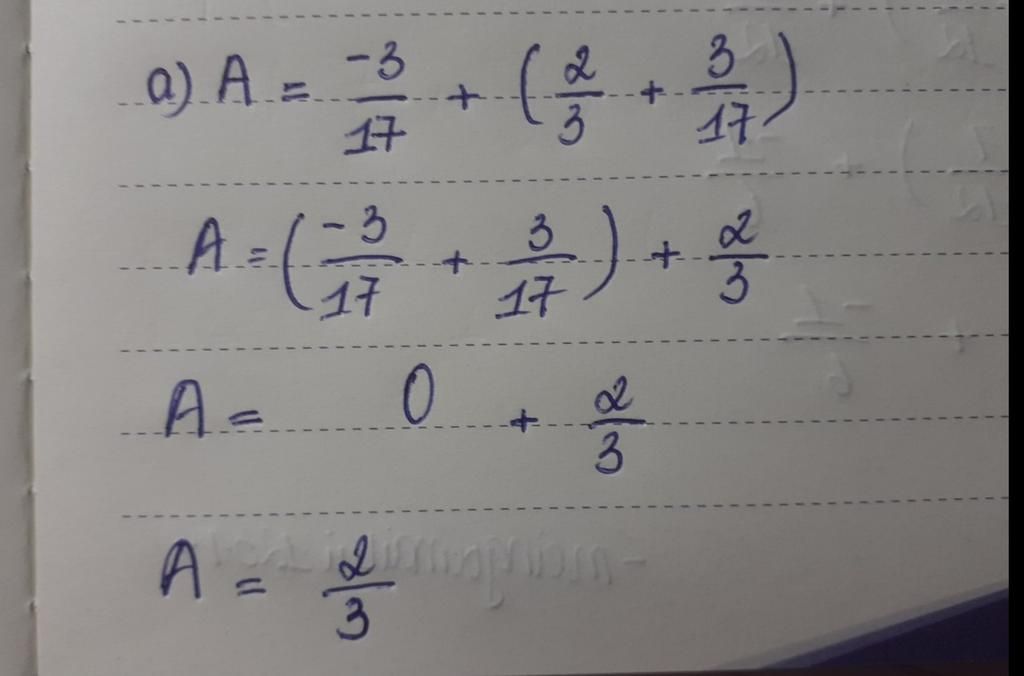 a) A = -3/17 + (2/3 + 3/17)
A = (-3/17 + 3/17) + 2/3
A = 0 + 2/3
A = 2/3